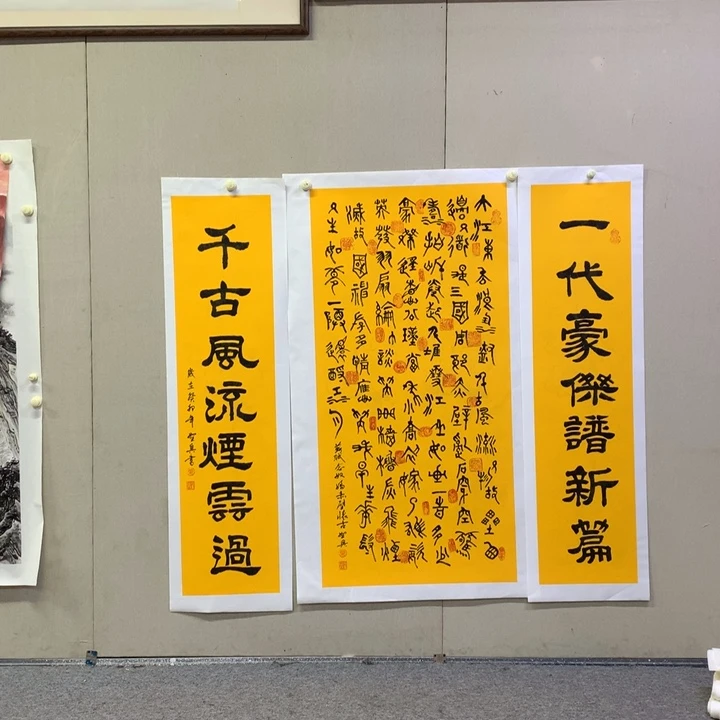 一代豪傑譜新篇
大江東去浪淘盡千古風流人物故壘西
邊人道是三國周郎赤壁亂石穿空驚
濤拍岸卷起千堆雪江山如畫一時多少
豪傑遙想公瑾當年小喬初嫁了雄姿
英發羽扇綸巾談笑間檣櫓灰飛煙
滅故國神游多情應笑我早生華髮
人生如夢一尊還酹江月
蘇軾念奴嬌赤壁懷古
千古風流煙雲過
歲在癸卯年